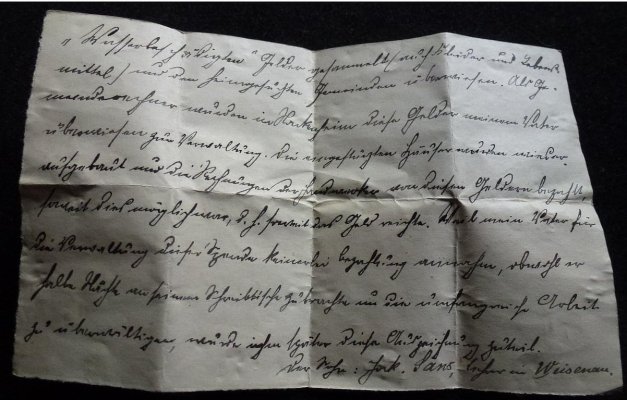 „Wasserbeschädigten" Gelder gesammelt (auch Kleider und Lebens-
mittel) und den heimgesuchten Gemeinden überwiesen. Als Ge-
meinderechner wurden in Nackenheim diese Gelder meinem Vater
überwiesen zur Verwaltung. Die eingestürzten Häuser wurden wieder
aufgebaut und die Rechnungen der Handwerker von diesen Geldern bezahlt,
soweit dies möglich war, d. h. soweit das Geld reichte. mein Vater für
die Verwaltung dieser Spende keinerlei Bezahlung annahm, obwohl er
halbe Nächte an seinem Schreibtische zubrachte um die umfangreiche Arbeit
zu überwältigen, wurde ihm später diese Auszeichnung zuteil.
Der Sohn: Lehrer in Weisenau.